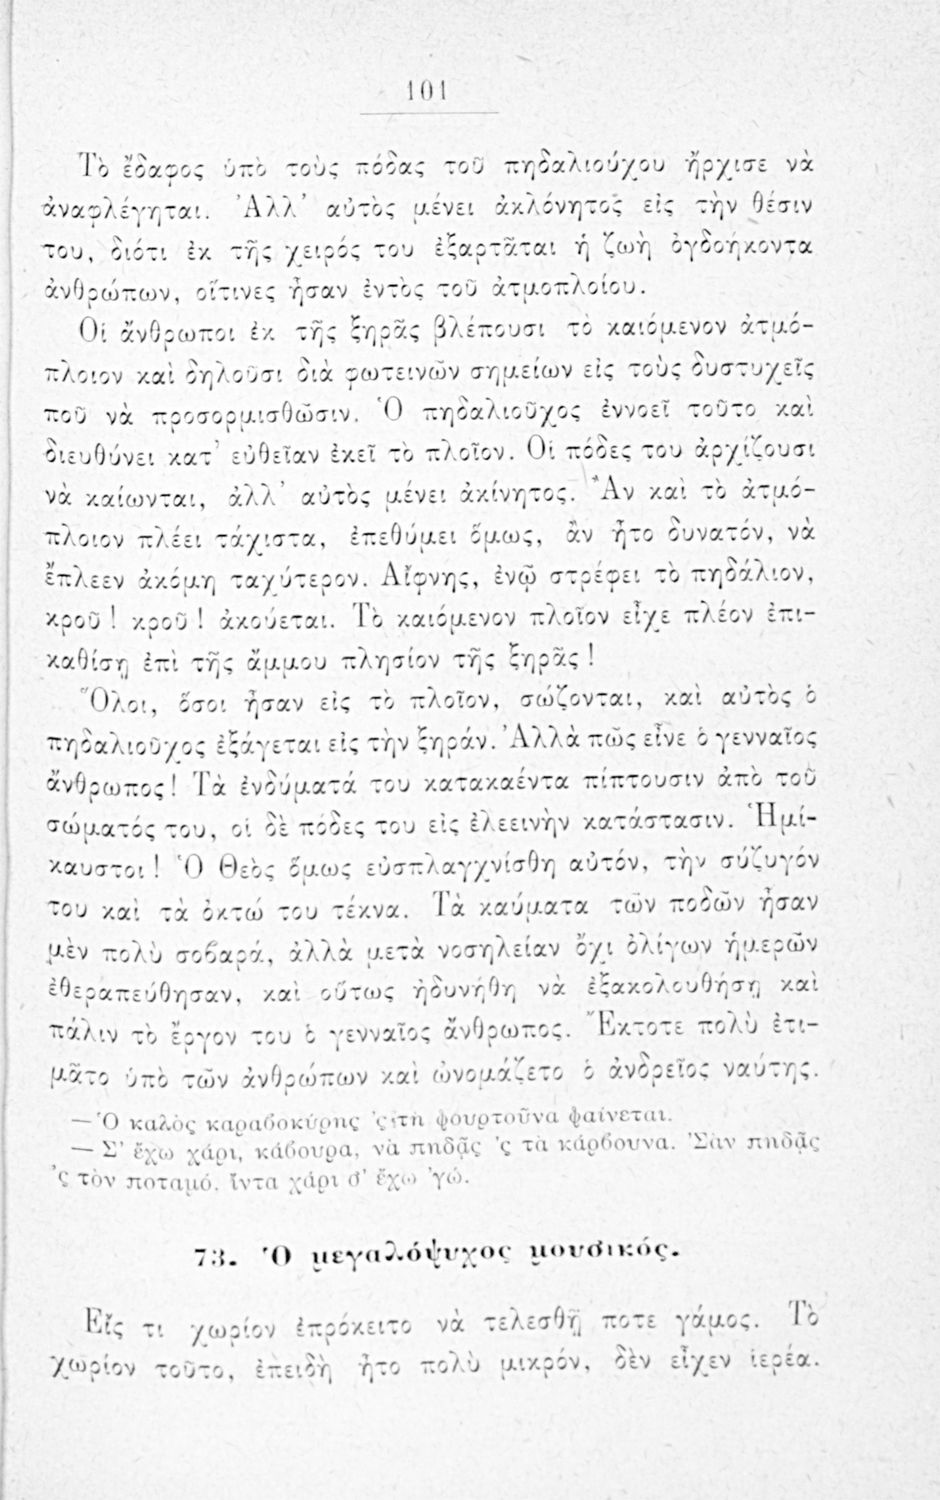 101
Τὸ ἔδαφος ὑπὸ τοὺς πόδας τοῦ πηδαλιούχου ἤρχισε νὰ
ἀναφλέγηται. Ἀλλ' αὐτὸς μένει ἀκλόνητος εἰς τὴν θέσιν
του, διότι ἐκ τῆς χειρός του ἐξαρτᾶται ἡ ζωὴ ὀγδοήκοντα
ἀνθρώπων, οἵτινες ἦσαν ἐντὸς τοῦ ἀτμοπλοίου.
Οἱ ἄνθρωποι ἐκ τῆς ξηρᾶς βλέπουσι τὸ καιόμενον ἀτμό-
πλοιον καὶ δηλοῦσι διὰ φωτεινῶν σημείων εἰς τοὺς δυστυχεῖς
ποῦ νὰ προσορμισθῶσιν. Ὁ πηδαλιοῦχος ἐννοεῖ τοῦτο καὶ
διευθύνει κατ' εὐθεῖαν ἐκεῖ τὸ πλοῖον. Οἱ πόδες του ἀρχίζουσι
νὰ καίωνται, ἀλλ' αὐτὸς μένει ἀκίνητος. Ἂν καὶ τὸ ἀτμό-
πλοιον πλέει τάχιστα, ἐπεθύμει ὅμως, ἂν ἦτο δυνατόν, νὰ
ἔπλεεν ἀκόμη ταχύτερον. Αἴφνης, ἐνῷ στρέφει τὸ πηδάλιον,
κροῦ! κροῦ! ἀκούεται. Τὸ καιόμενον πλοῖον εἶχε πλέον ἐπι-
καθίσῃ ἐπὶ τῆς ἄμμου πλησίον τῆς ξηρᾶς!
Ὅλοι, ὅσοι ἦσαν εἰς τὸ πλοῖον, σώζονται, καὶ αὐτὸς ὁ
πηδαλιοῦχος ἐξάγεται εἰς τὴν ξηράν. Ἀλλὰ πῶς εἶνε ὁ γενναῖος
ἄνθρωπος! Τὰ ἐνδύματά του κατακαέντα πίπτουσιν ἀπὸ τοῦ
σώματός του, οἱ δὲ πόδες του εἰς ἐλεεινὴν κατάστασιν. Ἡμί-
καυστοι! Ὁ Θεὸς ὅμως εὐσπλαγχνίσθη αὐτόν, τὴν σύζυγόν
του καὶ τὰ ὀκτώ του τέκνα. Τὰ καύματα τῶν ποδῶν ἦσαν
μὲν πολὺ σοβαρά, ἀλλὰ μετὰ νοσηλείαν ὄχι ὀλίγων ἡμερῶν
ἐθεραπεύθησαν, καὶ οὕτως ἠδυνήθη νὰ ἐξακολουθήσῃ καὶ
πάλιν τὸ ἔργον του ὁ γενναῖος ἄνθρωπος. Ἔκτοτε πολὺ ἐτι-
μᾶτο ὑπὸ τῶν ἀνθρώπων καὶ ὠνομάζετο ὁ ἀνδρεῖος ναύτης.
— Ὁ καλὸς καραβοκύρης 'ς τὴ φουρτοῦνα φαίνεται.
— Σ' ἔχω χάρι, κάβουρα, νὰ πηδᾷς 'ς τὰ κάρβουνα. Σὰν πηδᾷς
'ς τὸν ποταμό, ἵντα χάρι σ' ἔχω 'γώ.
73. Ὁ μεγαλόψυχος μουσικός.
Εἴς τι χωρίον ἐπρόκειτο νὰ τελεσθῇ ποτε γάμος. Τὸ
χωρίον τοῦτο, ἐπειδὴ ἦτο πολὺ μικρόν, δὲν εἶχεν ἱερέα.